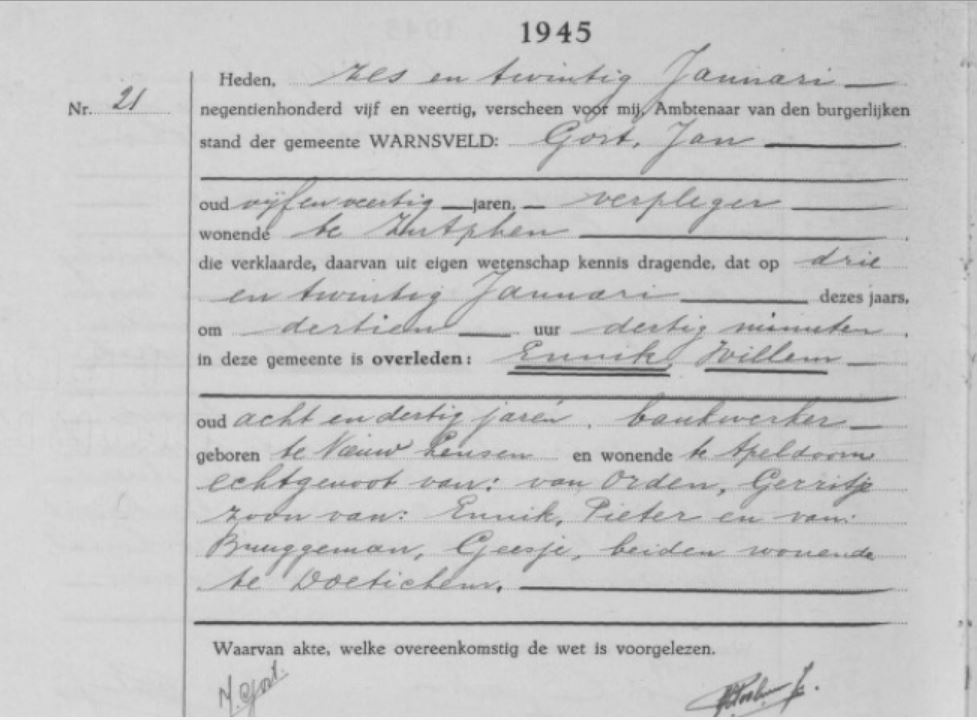 1945
Heden, zes en twintig Januari
Nr. 21
negentienhonderd vijf en veertig, verscheen voor mij, Ambtenaar van den burgerlijken
stand der gemeente WARNSVELD: Gort, Jan
oud vijf en veertig jaren, verpleger
wonende te Zutphen
die verklaarde, daarvan uit eigen wetenschap kennis dragende, dat op drie
en twintig Januari dezes jaars,
om dertien uur dertig minuten,
in deze gemeente is overleden: Ennik Willem
oud acht en dertig jaren, bankwerker
geboren te Nieuw en wonende te Apeldoorn
echtgenoot van: van Orden, Gerritje
zoon van: Ennik, Pieter en van:
Bruggeman, Geesje, beiden wonende
te Doetichem.
Waarvan akte, welke overeenkomstig de wet is voorgelezen.
J. Gort.